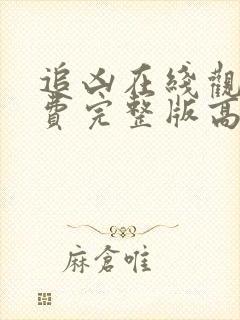 追凶在綫觀
費完整版高
麻倉唯